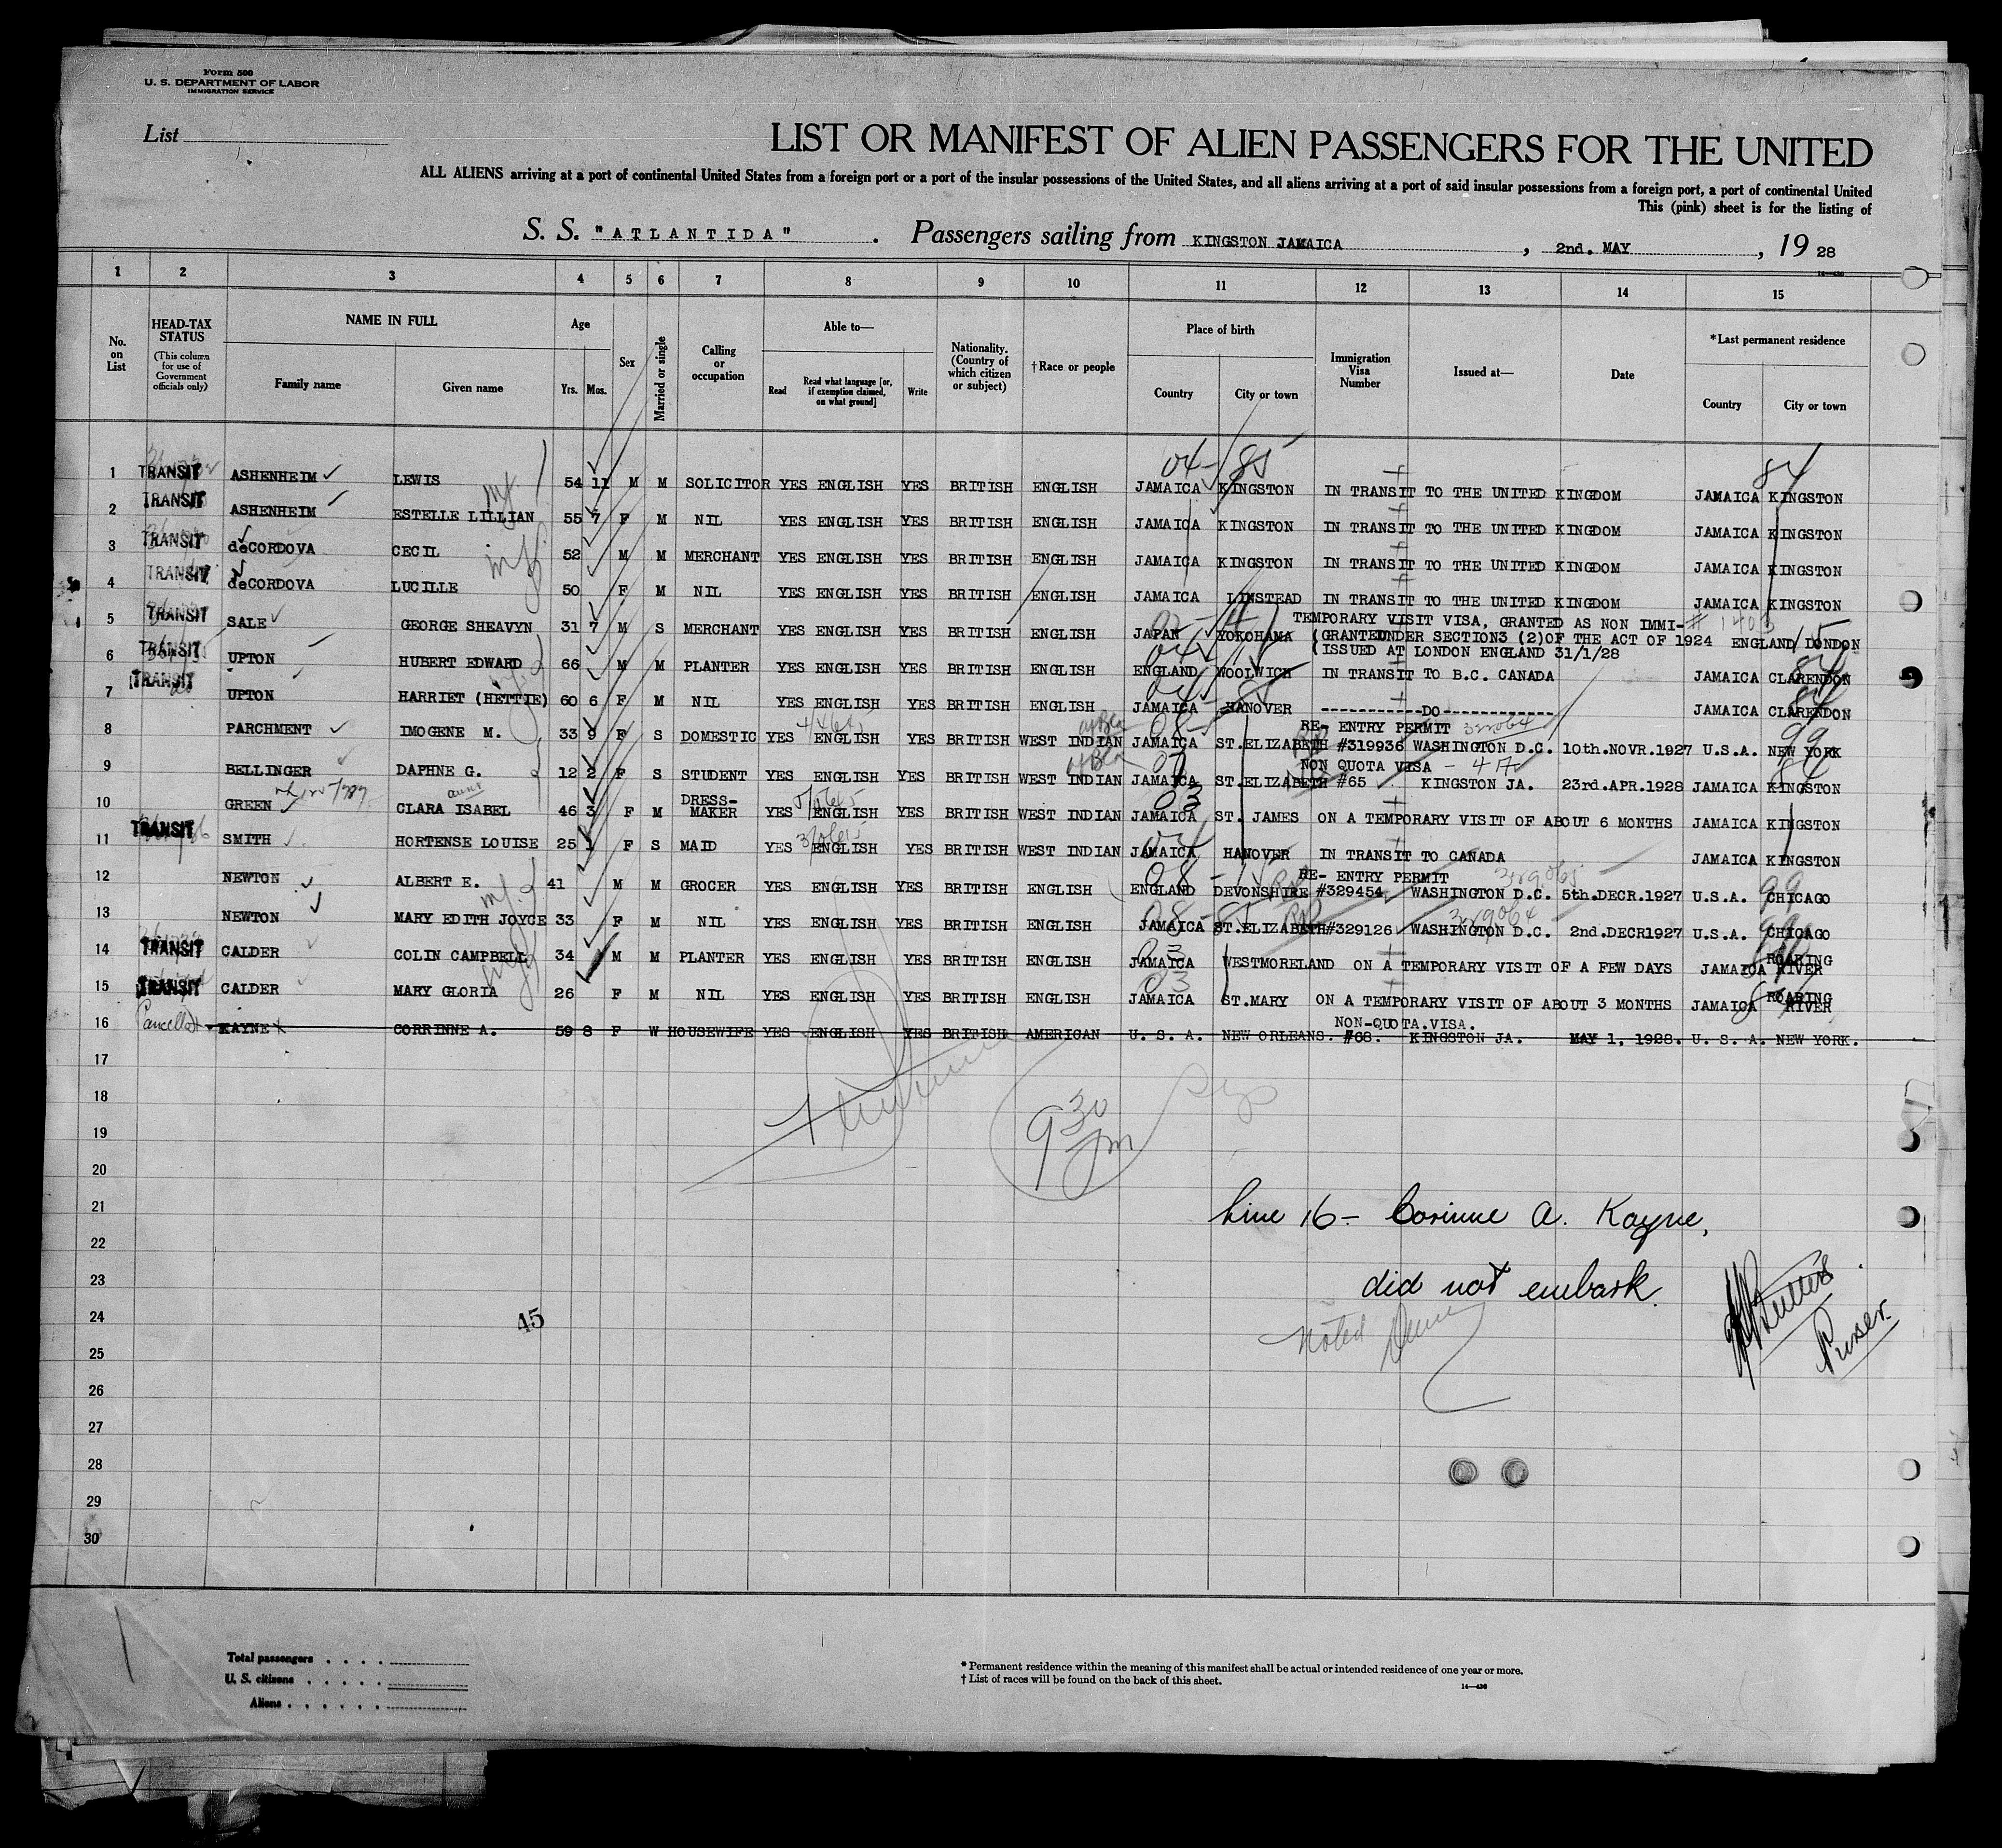 Form 500
U. S. DEPARTMENT OF LABOR
IMMIGRATION SERVICE
List
LIST OR MANIFEST OF ALIEN PASSENGERS FOR THE UNITED
ALL ALIENS arriving at a port of continental United States from a foreign port or a port of the insular possessions of the United States, and all aliens arriving at a port of said insular possessions from a foreign port, a port of continental United
This (pink) sheet is for the listing of
S. S. "ATLANTIDA" . Passengers sailing from KINGSTON JAMAICA , 2nd. MAY , 19 28
14-430
1 2 3 4 5 6 7 8 9 10 11 12 13 14 15
No. on List
HEAD-TAX STATUS
(This column for use of Government officials only)
NAME IN FULL
Family name Given name
Age
Yrs. Mos.
Sex
Married or single
Calling or occupation
Able to—
Read Read what language [or, if exemption claimed, on what ground] Write
Nationality. (Country of which citizen or subject)
†Race or people
Place of birth
Country City or town
Immigration Visa Number
Issued at—
Date
*Last permanent residence
Country City or town
04-85 84
1 TRANSIT ASHENHEIM LEWIS 54 11 M M SOLICITOR YES ENGLISH YES BRITISH ENGLISH JAMAICA KINGSTON IN TRANSIT TO THE UNITED KINGDOM JAMAICA KINGSTON
2 TRANSIT ASHENHEIM ESTELLE LILLIAN 55 7 F M NIL YES ENGLISH YES BRITISH ENGLISH JAMAICA KINGSTON IN TRANSIT TO THE UNITED KINGDOM JAMAICA KINGSTON
3 TRANSIT deCORDOVA CECIL 52 M M MERCHANT YES ENGLISH YES BRITISH ENGLISH JAMAICA KINGSTON IN TRANSIT TO THE UNITED KINGDOM JAMAICA KINGSTON
4 TRANSIT deCORDOVA LUCILLE 50 F M NIL YES ENGLISH YES BRITISH ENGLISH JAMAICA LINSTEAD IN TRANSIT TO THE UNITED KINGDOM JAMAICA KINGSTON
5 TRANSIT SALE GEORGE SHEAVYN 31 7 M S MERCHANT YES ENGLISH YES BRITISH ENGLISH JAPAN YOKOHAMA TEMPORARY VISIT VISA, GRANTED AS NON IMMI-
(GRANTED UNDER SECTION3 (2)OF THE ACT OF 1924 ENGLAND LONDON
(ISSUED AT LONDON ENGLAND 31/1/28
6 TRANSIT UPTON HUBERT EDWARD 66 M M PLANTER YES ENGLISH YES BRITISH ENGLISH ENGLAND WOOLWICH IN TRANSIT TO B.C. CANADA JAMAICA CLARENDON
7 TRANSIT UPTON HARRIET (HETTIE) 60 6 F M NIL YES ENGLISH YES BRITISH ENGLISH JAMAICA HANOVER ------------DO------------- JAMAICA CLARENDON
RE- ENTRY PERMIT
8 PARCHMENT IMOGENE M. 33 9 F S DOMESTIC YES ENGLISH YES BRITISH WEST INDIAN JAMAICA ST.ELIZABETH #319936 WASHINGTON D.C. 10th.NOVR.1927 U.S.A. NEW YORK
NON QUOTA VISA
9 BELLINGER DAPHNE G. 12 2 F S STUDENT YES ENGLISH YES BRITISH WEST INDIAN JAMAICA ST.ELIZABETH #65 KINGSTON JA. 23rd.APR.1928 JAMAICA KINGSTON
aunt
10 GREEN CLARA ISABEL 46 3 F M DRESS-MAKER YES ENGLISH YES BRITISH WEST INDIAN JAMAICA ST. JAMES ON A TEMPORARY VISIT OF ABOUT 6 MONTHS JAMAICA KINGSTON
11 TRANSIT SMITH HORTENSE LOUISE 25 1 F S MAID YES ENGLISH YES BRITISH WEST INDIAN JAMAICA HANOVER IN TRANSIT TO CANADA JAMAICA KINGSTON
RE- ENTRY PERMIT
12 NEWTON ALBERT E. 41 M M GROCER YES ENGLISH YES BRITISH ENGLISH ENGLAND DEVONSHIRE #329454 WASHINGTON D.C. 5th.DECR.1927 U.S.A. CHICAGO
13 NEWTON MARY EDITH JOYCE 33 F M NIL YES ENGLISH YES BRITISH ENGLISH JAMAICA ST.ELIZABETH#329126 WASHINGTON D.C. 2nd.DECR1927 U.S.A. CHICAGO
14 TRANSIT CALDER COLIN CAMPBELL 34 M M PLANTER YES ENGLISH YES BRITISH ENGLISH JAMAICA WESTMORELAND ON A TEMPORARY VISIT OF A FEW DAYS JAMAICA ROARING RIVER
15 TRANSIT CALDER MARY GLORIA 26 F M NIL YES ENGLISH YES BRITISH ENGLISH JAMAICA ST.MARY ON A TEMPORARY VISIT OF ABOUT 3 MONTHS JAMAICA ROARING RIVER
NON-QUOTA.VISA.
16 Cancelled KAYNE CORRINNE A. 59 8 F W HOUSEWIFE YES ENGLISH YES BRITISH AMERICAN U. S. A. NEW ORLEANS. #68. KINGSTON JA. MAY 1, 1928. U. S. A. NEW YORK.
17
18
9 30 pm
19
20
21
Line 16 - Corinne A. Kayne,
22
23
did not embark.
24
45
Noted
Purser.
25
26
27
28
29
30
Total passengers
U. S. citizens
Aliens
*Permanent residence within the meaning of this manifest shall be actual or intended residence of one year or more.
†List of races will be found on the back of this sheet.
14-430